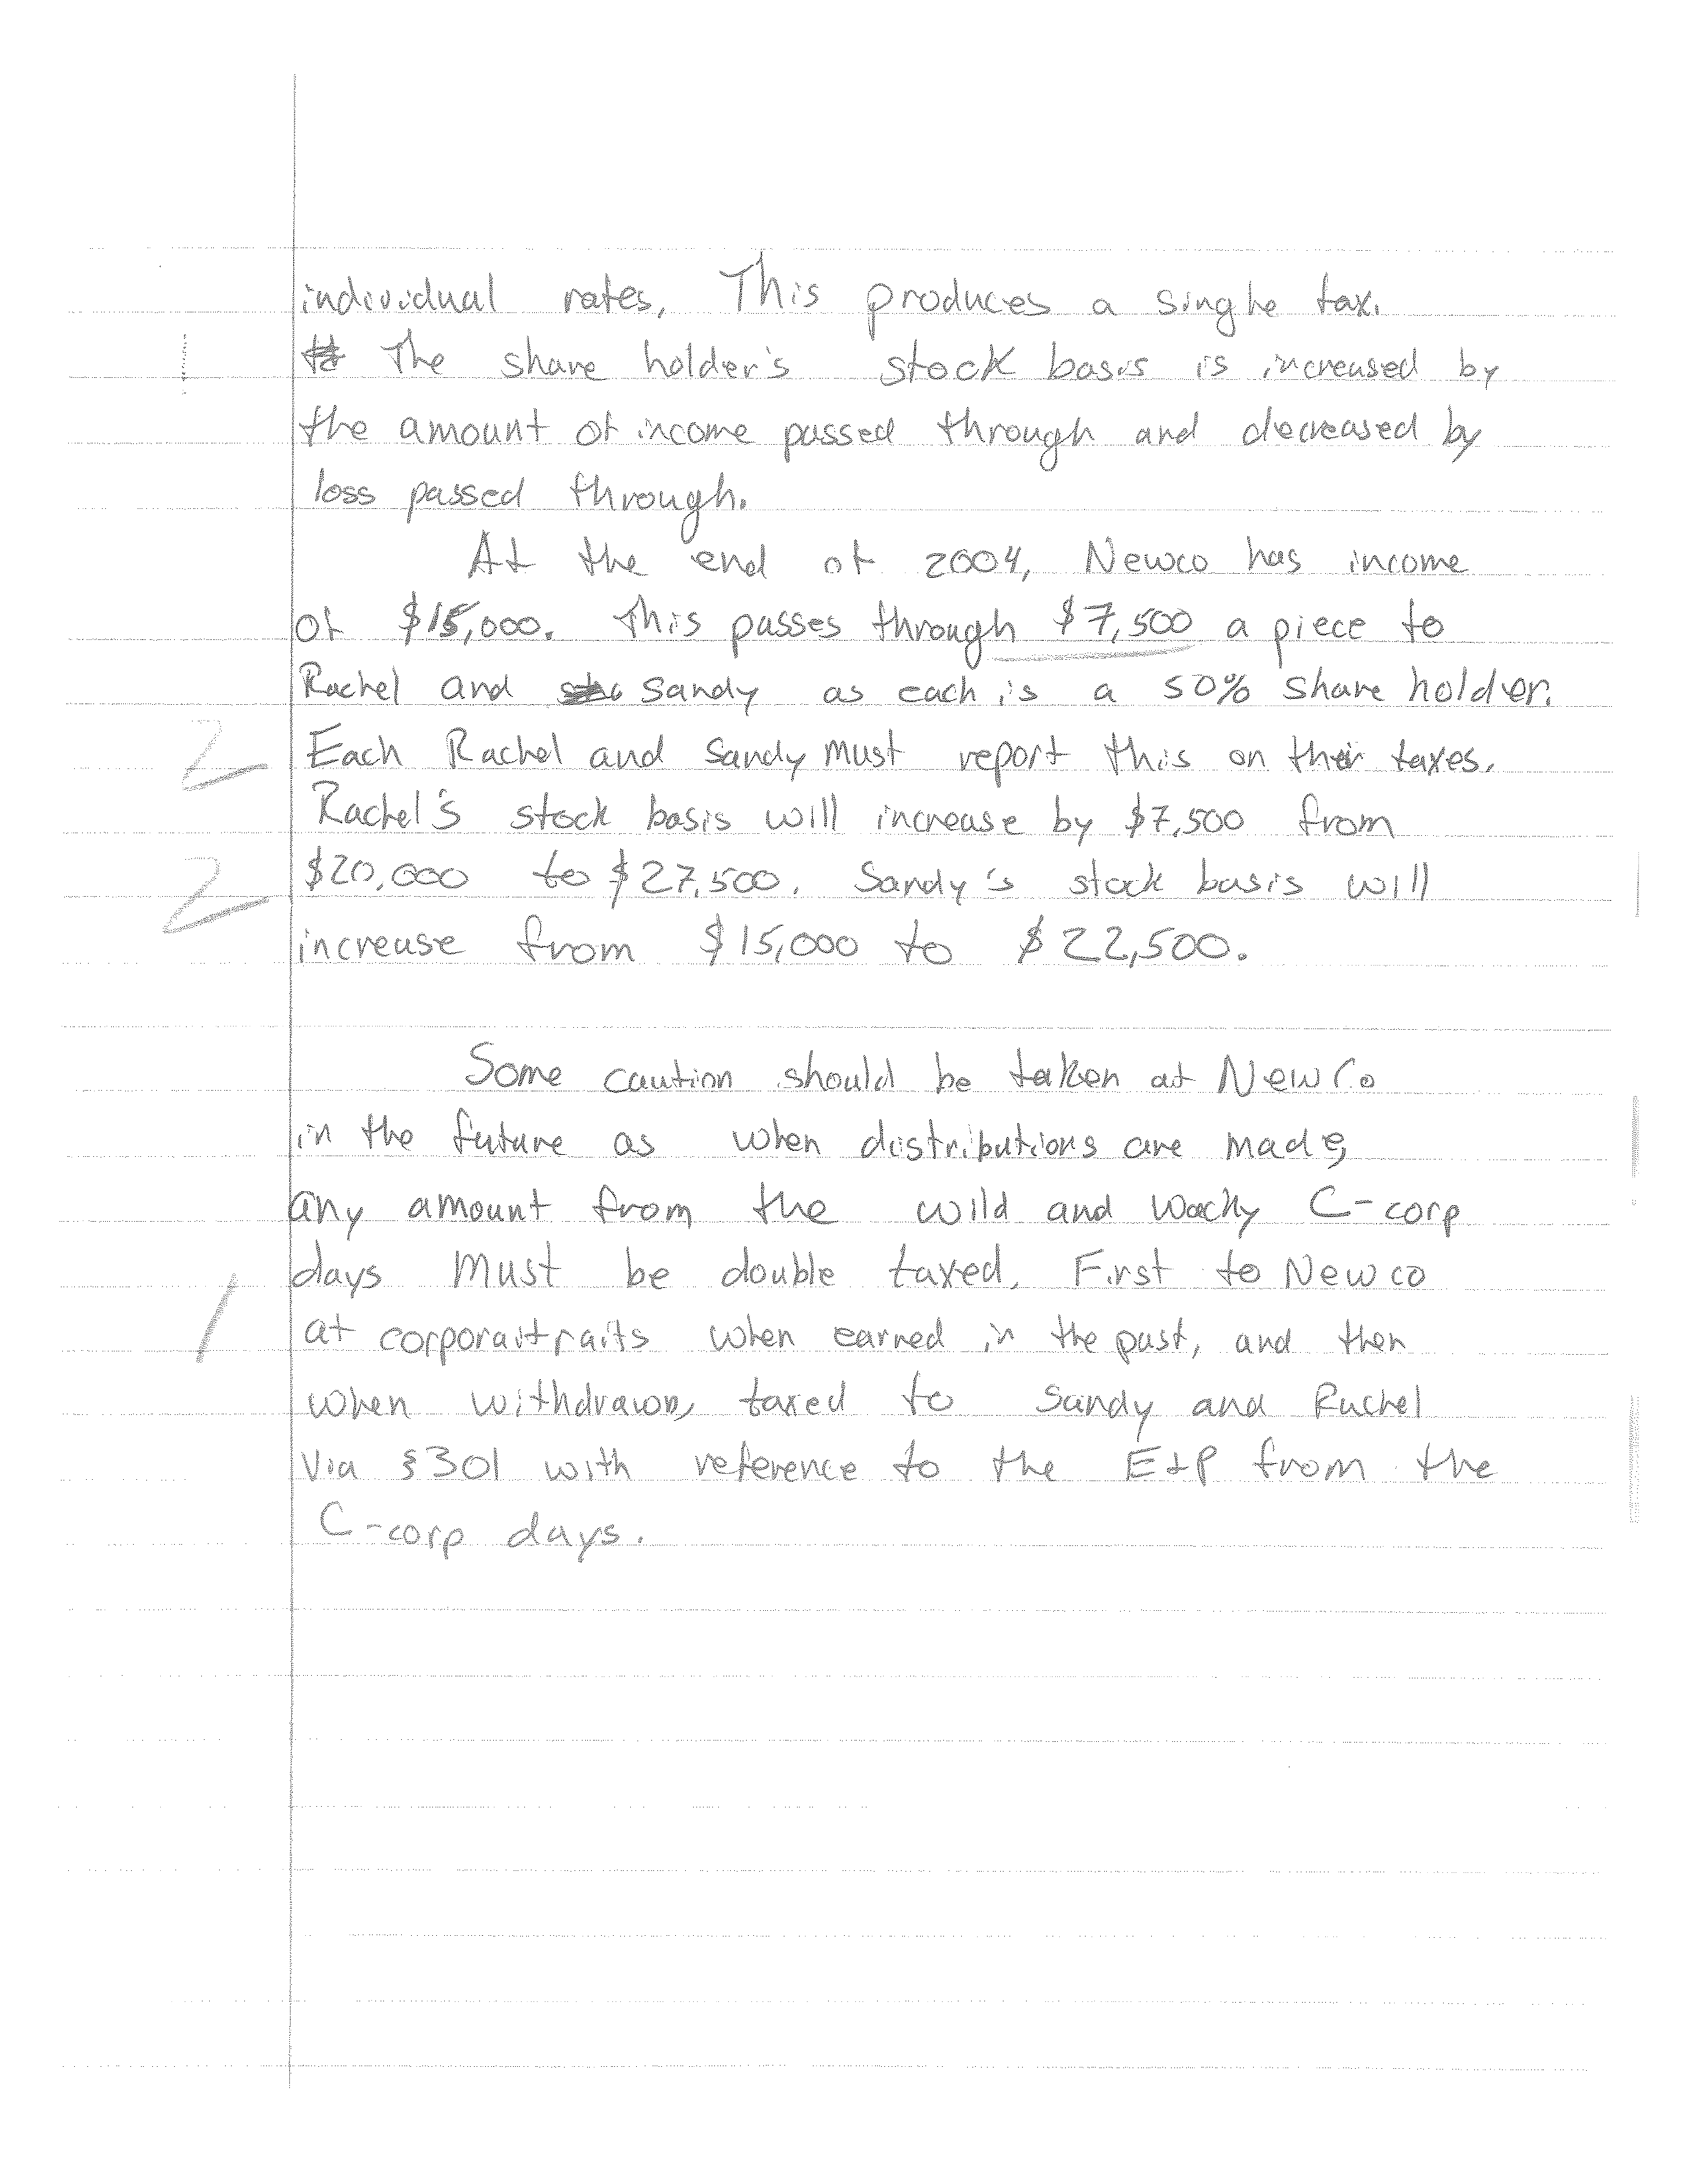 individual rates. This produces a singhe tax.
1 The share holder's stock basis is increased by
the amount of income passed through and decreased by
loss passed through.
At the end of 2004, Newco has income
of $15,000. This passes through $7,500 a piece to
Rachel and Sandy as each is a 50% share holder.
2 Each Rachel and Sandy Must report this on their taxes.
Rachel's stock basis will increase by $7,500 from
2 $20,000 to $27,500. Sandy's stock basis will
increase from $15,000 to $22,500.
Some caution should be taken at NewCo
in the future as when distributions are made,
any amount from the wild and wacky C-corp
days Must be double taxed. First to Newco
1 at corporaitraits when earned in the past, and then
when withdrawn, taxed to Sandy and Rachel
Via §301 with reference to the E+P from the
C-corp days.